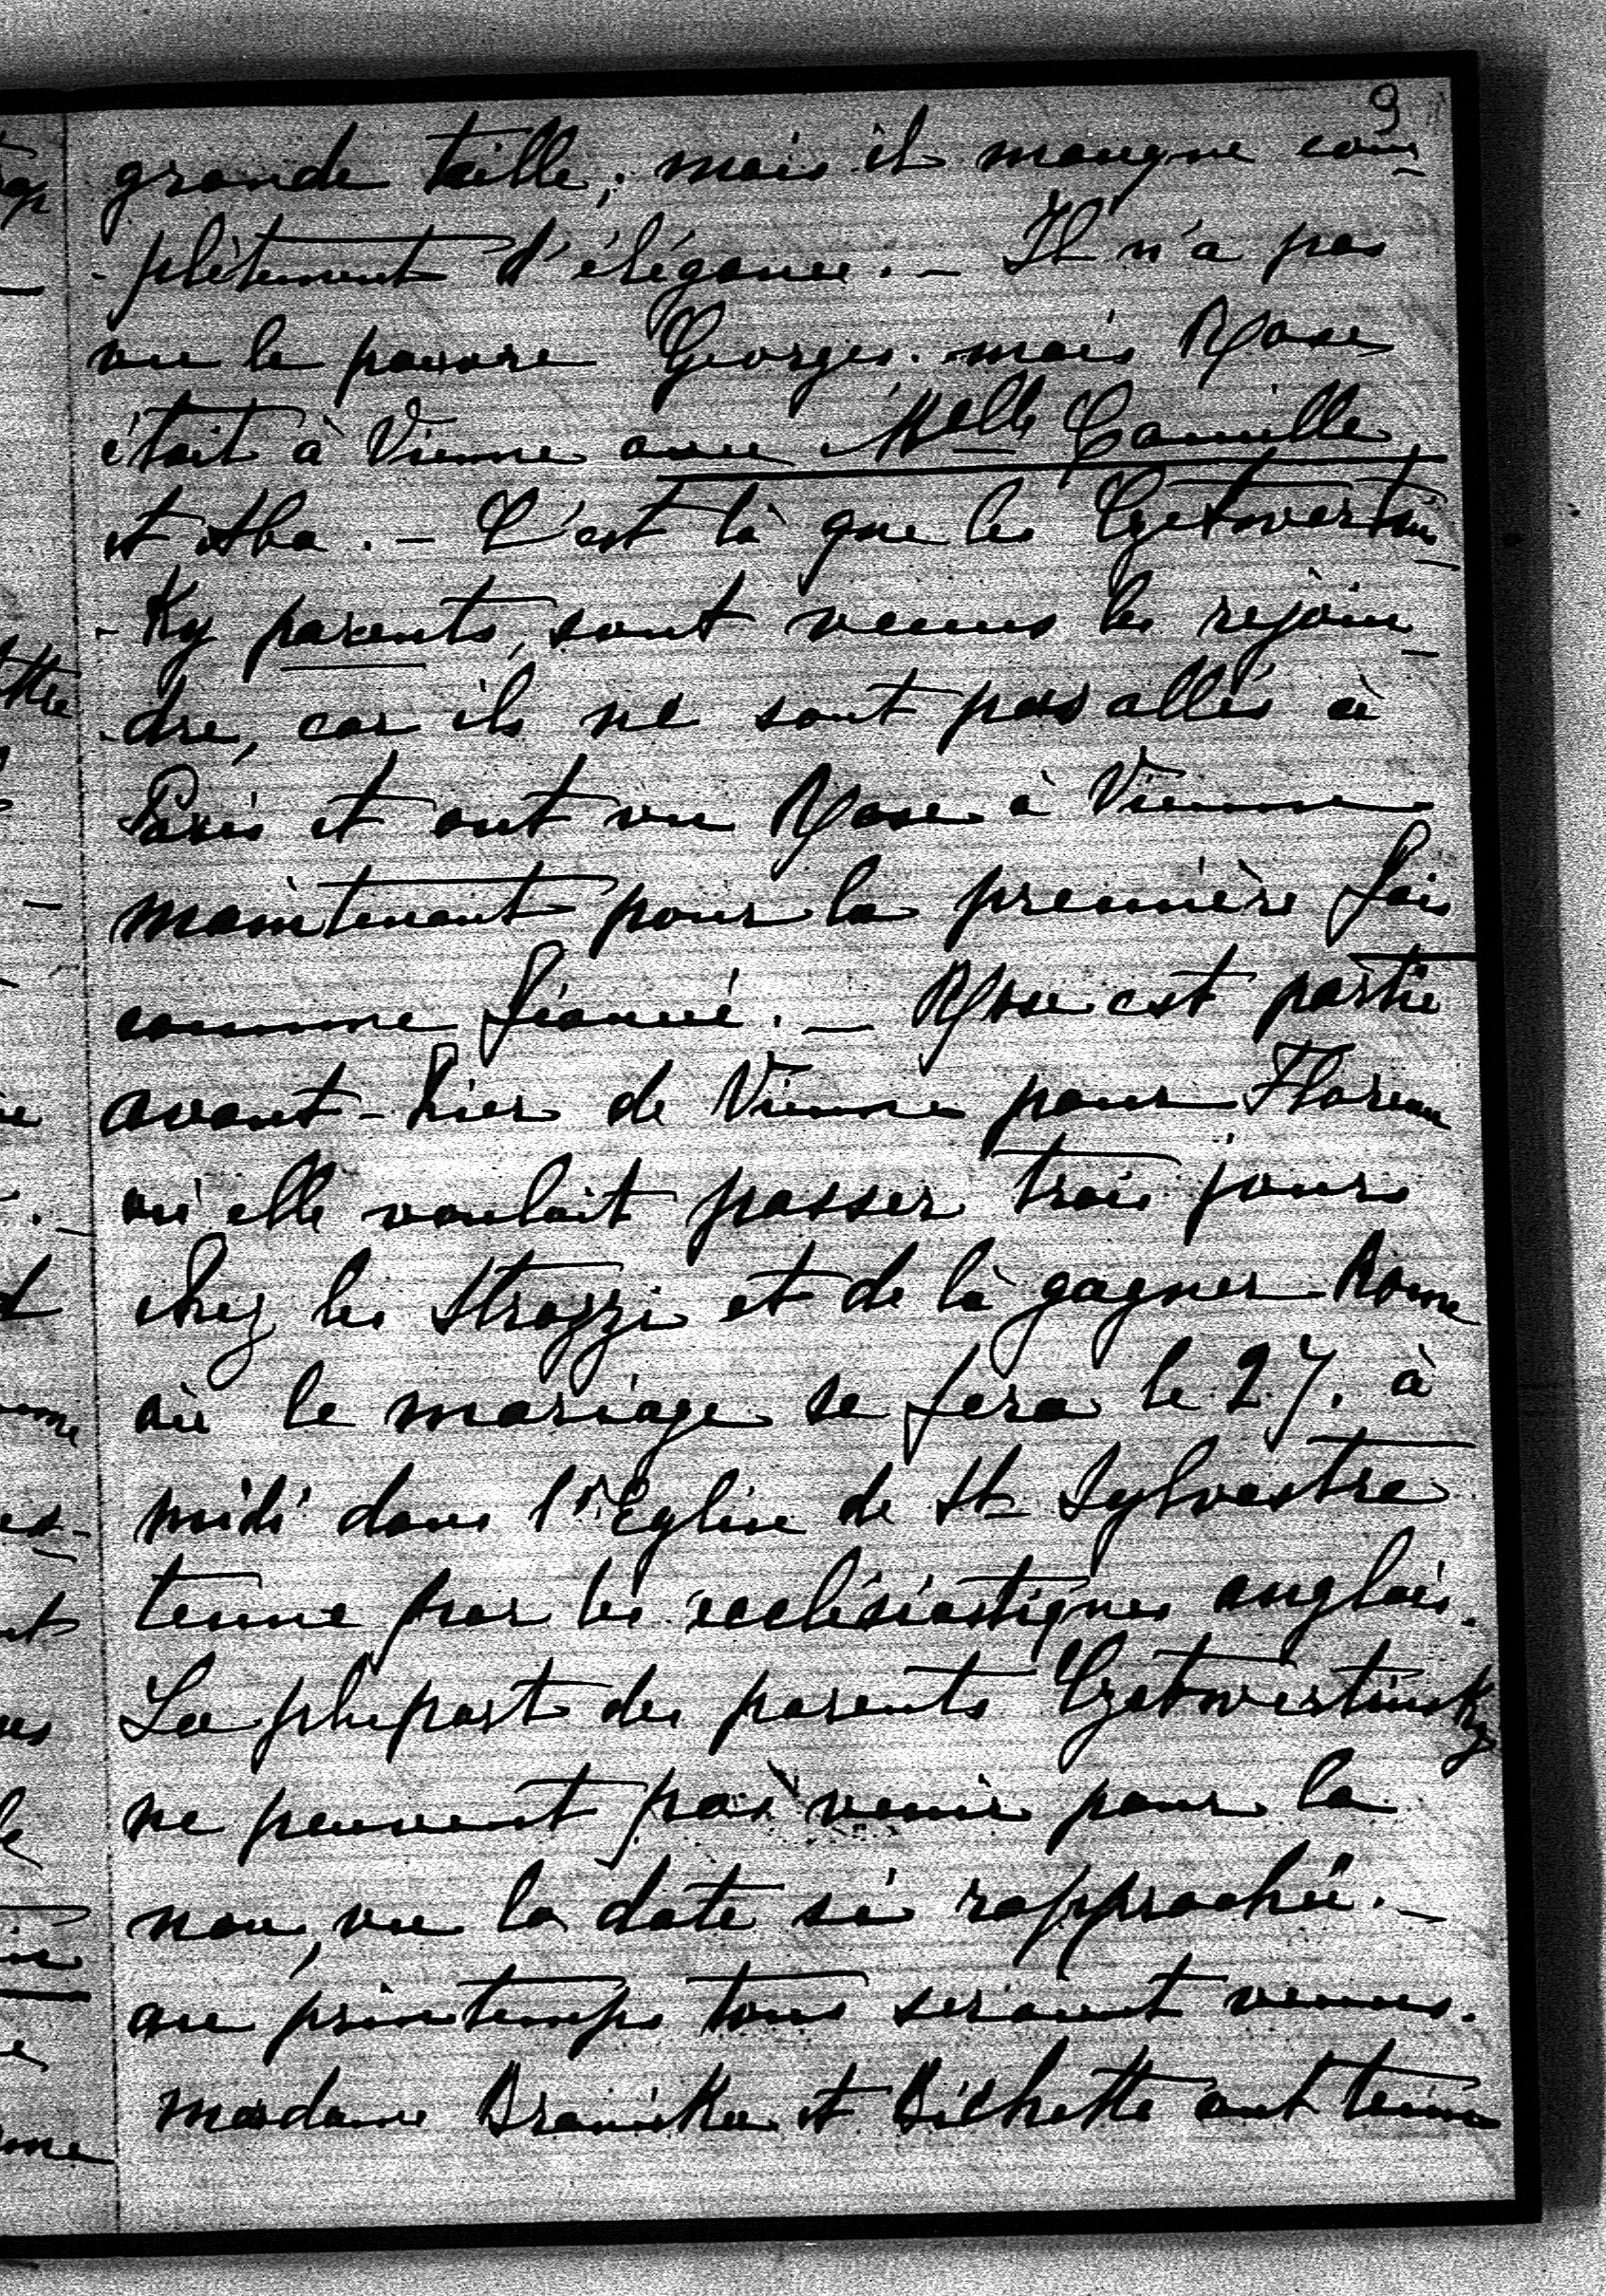 9
grande taille, mais il manque com-
-plètement d'élégance. — Il n'a pas
vu le pauvre Georges. mais Rose
était à Vienne avec Melle Camille
et Aba. — C'est là que les Czetwertins-
-Ky parents, sont venus les rejoin-
-dre, car ils ne sont pas allés à
Paris et ont vu Rose à Vienne
maintenant pour la première fois
comme fiancée. — Rose est partie
avant-hier de Vienne pour Florence
où elle voulait passer trois jours
chez les Strozzi et de là gagner Rome
où le mariage se fera le 27. à
midi dans l'Eglise de St Sylvestre
tenue par les ecclésiastiques anglais.
La plupart des parents Czetwertinsky
ne peuvent pas venir pour la
noce, vu la date si rapprochée. —
au printemps tous seraient venus.
madame Branicka et Bichette ont